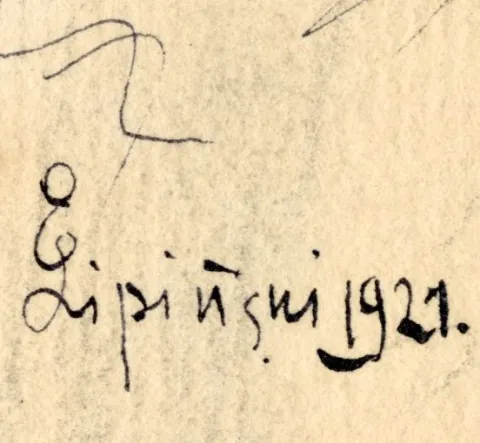 E
Lipiński 1921.